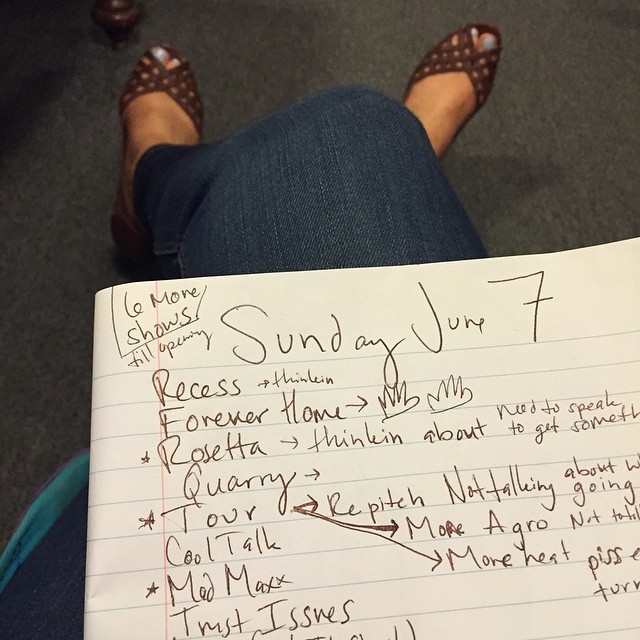 6 More
shows
till opening
Sunday June 7
Recess → thinkin
Forever Home →
* Rosetta → thinkin about need to speak
to get someth
Quarry →
* Tour → Repitch Not talking about w
going
→ More Agro Not told
Cool Talk
→ More heat piss e
* Mad Maxx
turn
Trust Issues